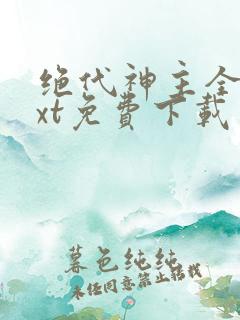 绝代神主全
xt免费下载
暮色纯纯
未经同意禁止转载